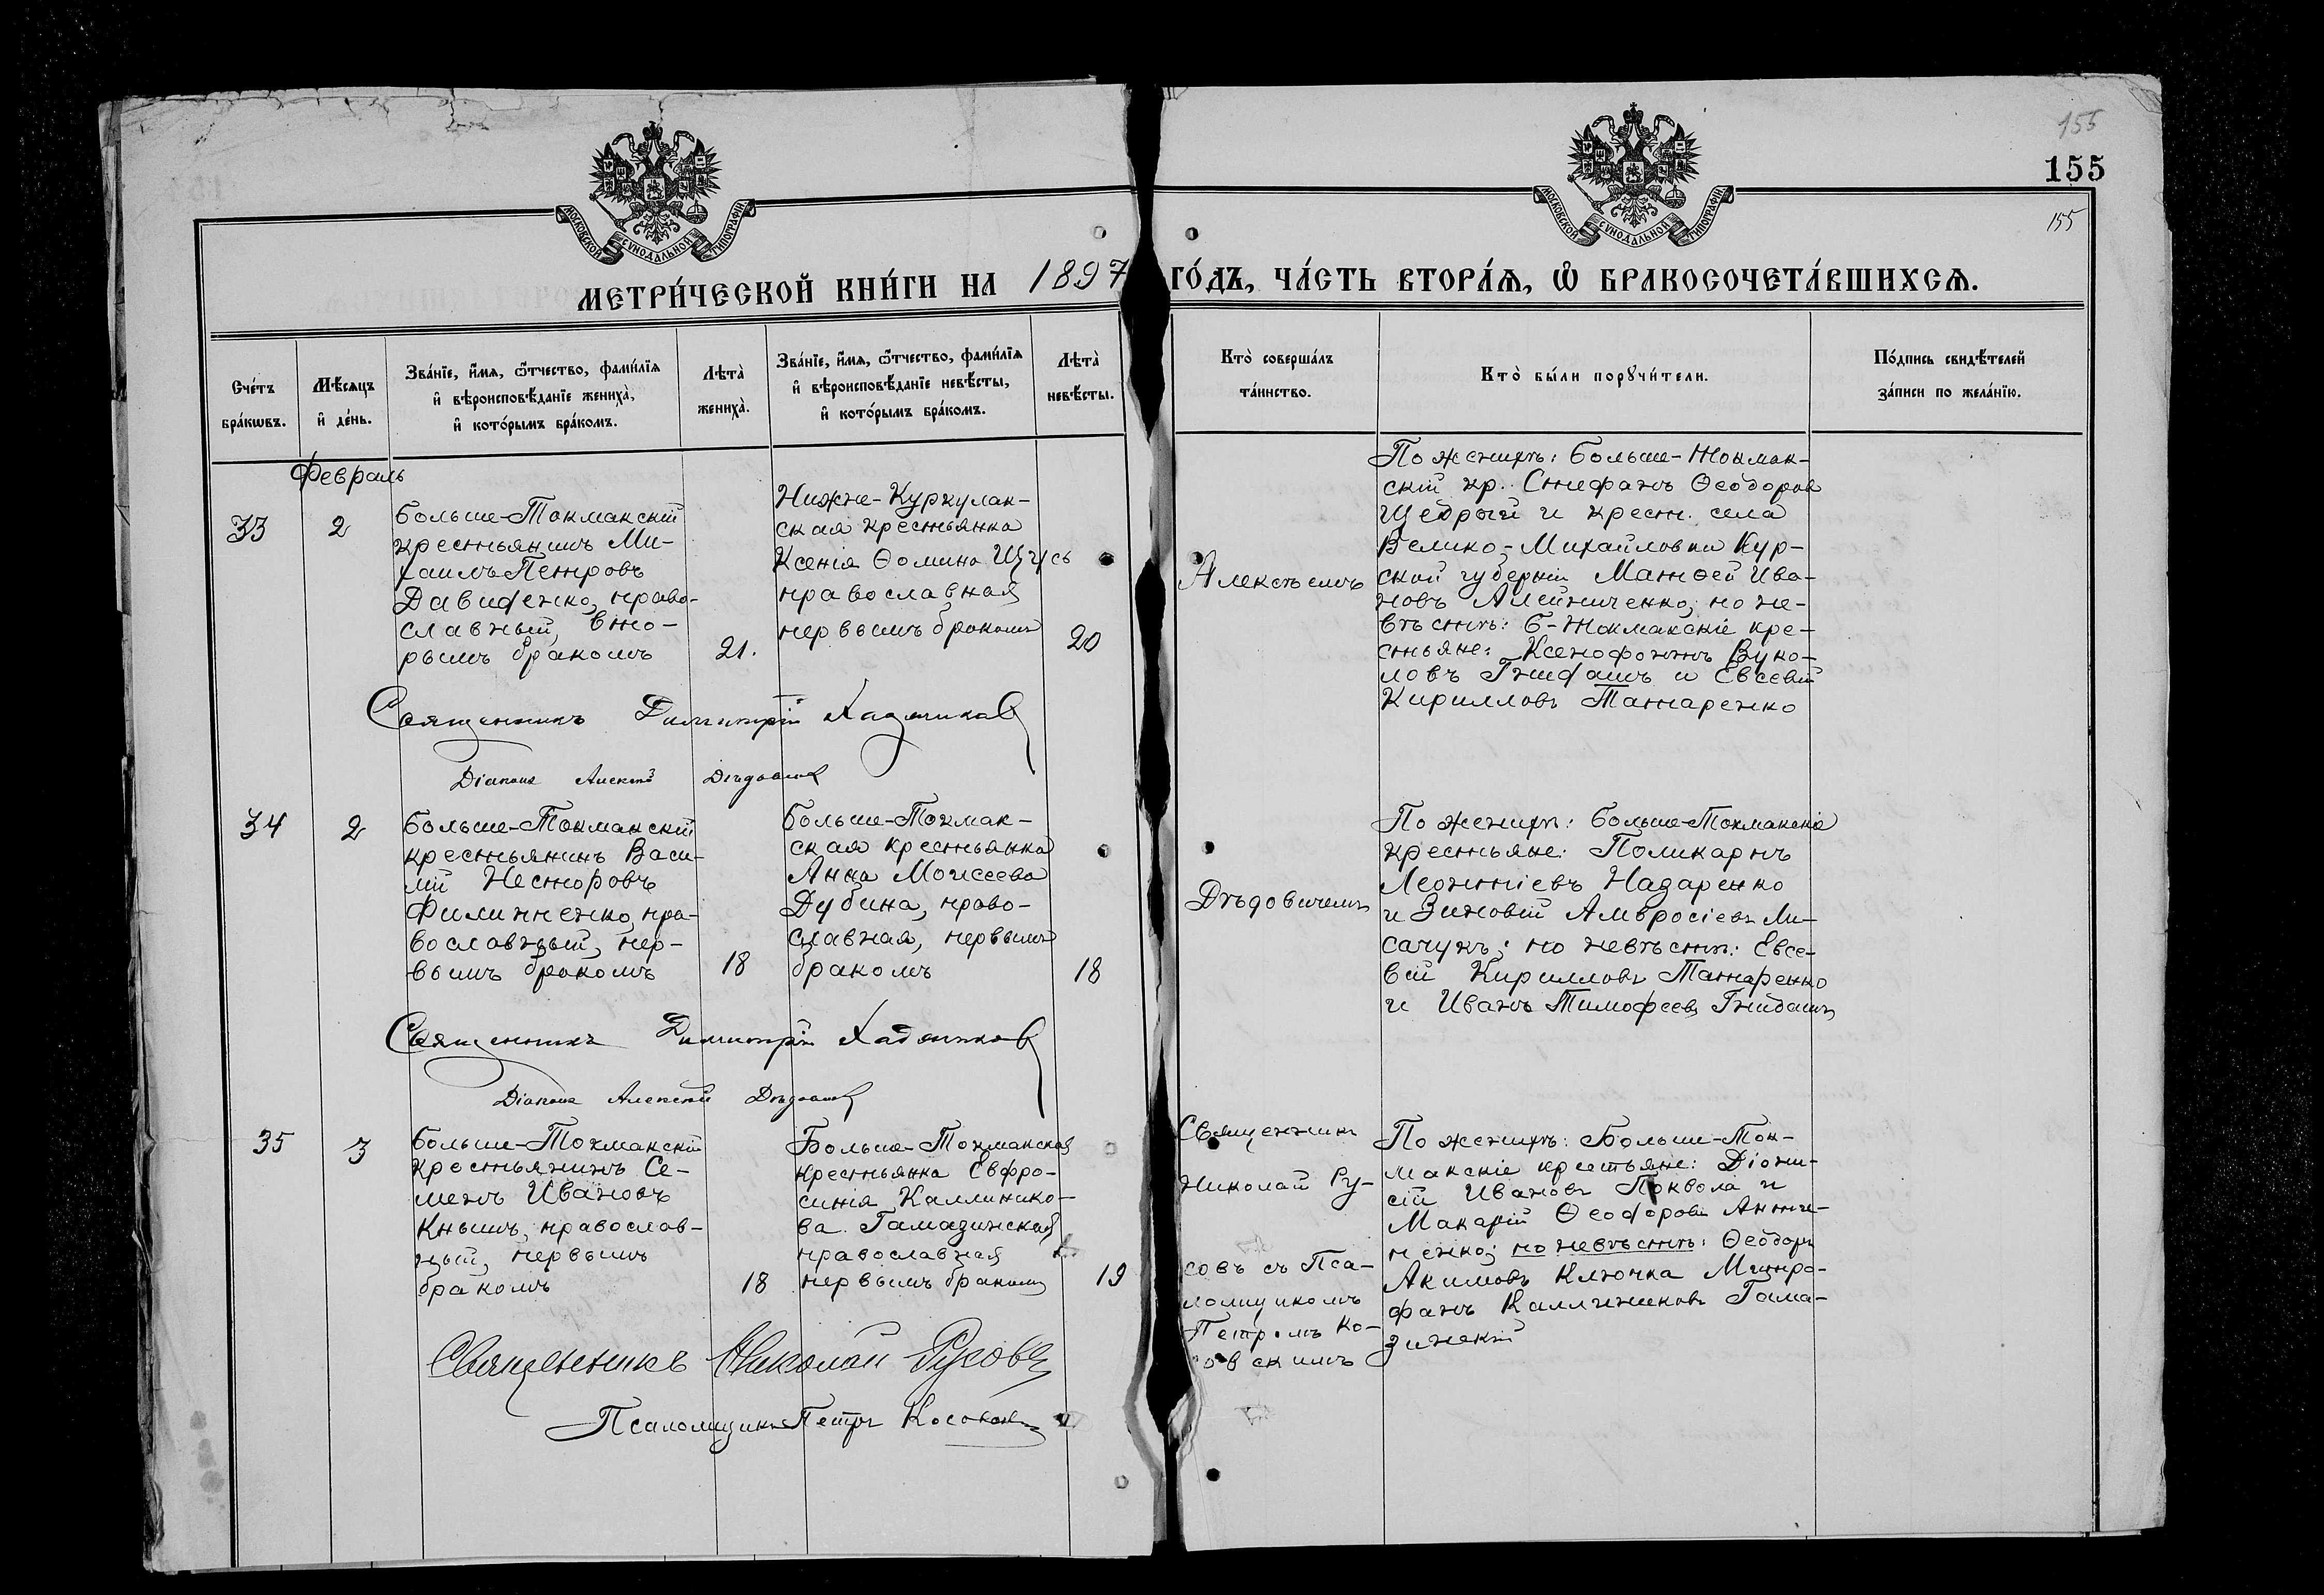 155
155
155
МОСКОВСКОЙ СѴНОДАЛЬНОЙ ТИПОГРАФІИ
МОСКОВСКОЙ СѴНОДАЛЬНОЙ ТИПОГРАФІИ
МЕТРИ́ЧЕСКОЙ КНИ́ГИ НА 1897 ГО́ДЪ, ЧА́СТЬ ВТОРА́Ѧ, Ѽ БРАКОСОЧЕТА́ВШИХСѦ.
Сче́тъ
бра́кѡвъ.
Мѣ́сяцъ
и҆ де́нь.
Зва́нїе, и҆́мя, ѻ҆́тчество, фами́лїя
и҆ вѣроисповѣ́данїе жениха̀,
и҆ кото́рымъ бра́комъ.
Лѣта̀
жениха̀.
Зва́нїе, и҆́мя, ѻ҆́тчество, фами́лїя
и҆ вѣроисповѣ́данїе невѣ́сты,
и҆ кото́рымъ бра́комъ.
Лѣта̀
невѣ́сты.
Кто̀ соверша́лъ
та́инство.
Кто̀ бы́ли порꙋчи́тели.
По́дпись свидѣ́телей
за́писи по жела́нїю.
Февраль
33
2
Больше-Токмакскій
крестьянинъ Ми-
хаилъ Петровъ
Давиденко, право-
славный, вто-
рымъ бракомъ
21.
Нижне-Куркулак-
ская крестьянка
Ксенія Ѳомина
православная
первымъ бракомъ
20
Алексѣемъ
По женихѣ: Больше-Токмак-
скій кр. Стефанъ Ѳеодоровъ
Щедрый и крест. села
Велико-Михайловки Кур-
ской губерніи Матѳей Ива-
новъ Алейниченко; по не-
вѣстѣ: Б-Токмакскіе кре-
стьяне: Ксенофонтъ Вуко-
ловъ и Евсевій
Кирилловъ Татаренко
Священникъ Димитрій
Діаконъ Алексѣй Дѣдович
34
2
Больше-Токмакскій
крестьянинъ Васи-
лій Несторовъ
Филиппенко, пра-
вославный, пер-
вымъ бракомъ
18
Больше-Токмак-
ская крестьянка
Анна Моисеева
Дубина, право-
славная, первымъ
бракомъ
18
Дѣдовичемъ
По женихѣ: Больше-Токмакскіе
крестьяне: Поликарпъ
Леонтіевъ Назаренко
и Зиновій Амвросіевъ Ли-
сачукъ; по невѣстѣ: Евсе-
вій Кирилловъ Татаренко
и Иванъ Тимофеевъ
Священникъ Димитрій
Діаконъ Алексѣй Дѣдович
35
3
Больше-Токмакскій
крестьянинъ Се-
менъ Ивановъ
Кнышъ, православ-
ный, первымъ
бракомъ
18
Больше-Токмакская
крестьянка Евфро-
синія Каллинико-
ва Гамазинская
православная
первымъ бракомъ
19
Священник
Николай Ру-
совъ съ Пса-
ломщикомъ
Петромъ Ко-
совскимъ
По женихѣ: Больше-Ток-
макскіе крестьяне: Діони-
сій Ивановъ Поквола и
Макарій Ѳеодоровъ Анти-
пенко; по невѣстѣ: Ѳеодоръ
Акимовъ Ключка Митро-
фанъ Каллиниковъ Гама-
зинскій
Священникъ Николай Русовъ
Псаломщикъ Петръ Косовскій